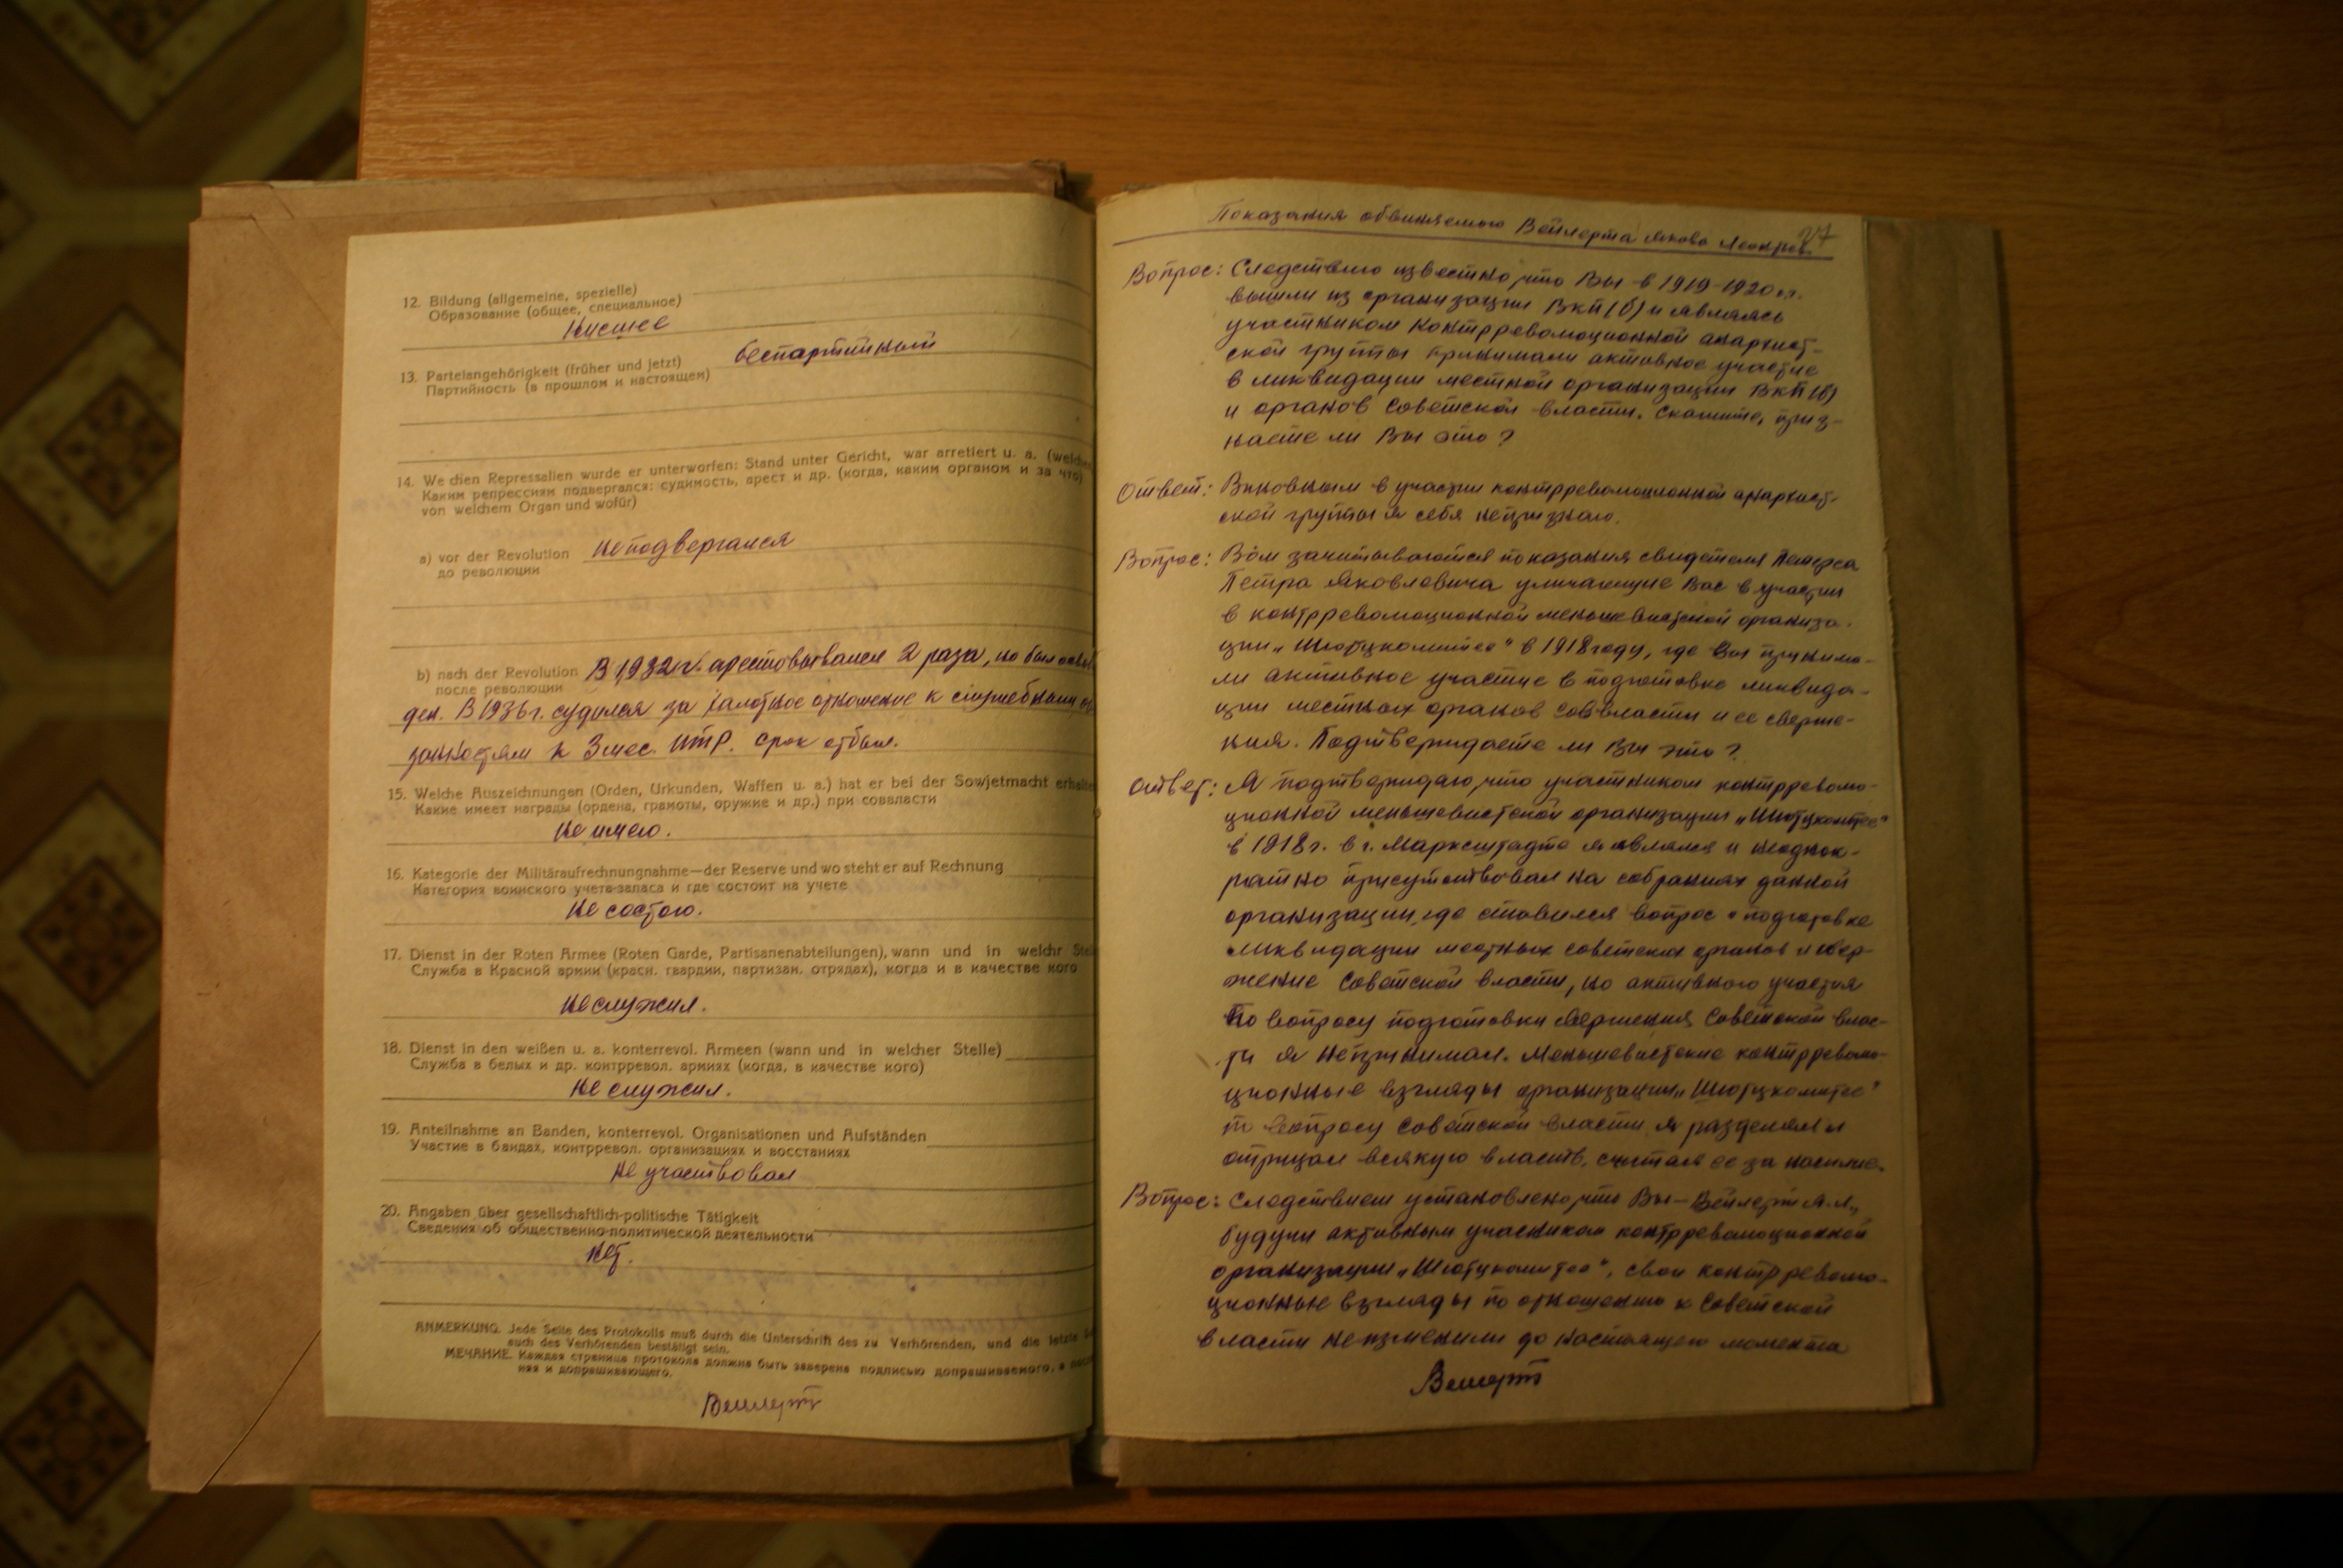 12. Bildung (allgemeine, spezielle)
Образование (общее, специальное)
Низшее
13. Parteiangehörigkeit (früher und jetzt)
Партийность (в прошлом и настоящем)
беспартийный
14. We chen Repressalien wurde er unterworfen: Stand unter Gericht, war arretiert u. a. (welchem
Каким репрессиям подвергался: судимость, арест и др. (когда, каким органом и за что)
von welchem Organ und wofür)
a) vor der Revolution
до революции
не подвергался
b) nach der Revolution
после революции
В 1932 г. арестовывался 2 раза, но был
ден. В 1936 г. судился за халатное отношение к служебным
занностям к 3 мес. ИТР. срок отбыл.
15. Welche Auszeichnungen (Orden, Urkunden, Waffen u. a.) hat er bei der Sowjetmacht erhalten
Какие имеет награды (ордена, грамоты, оружие и др.) при соввласти
не имею.
16. Kategorie der Militäraufrechnungnahme—der Reserve und wo steht er auf Rechnung
Категория воинского учета-запаса и где состоит на учете
не состою.
17. Dienst in der Roten Armee (Roten Garde, Partisanenabteilungen), wann und in welchr
Служба в Красной армии (красн. гвардии, партизан. отрядах), когда и в качестве кого
не служил.
18. Dienst in den weißen u. a. konterrevol. Armeen (wann und in welcher Stelle)
Служба в белых и др. контррвол. армиях (когда, в качестве кого)
не служил.
19. Anteilnahme an Banden, konterrevol. Organisationen und Aufständen
Участие в бандах, контррвол. организациях и восстаниях
не участвовал
20. Angaben über gesellschaftlich-politische Tätigkeit
Сведения об общественно-политической деятельности
нет.
ANMERKUNG. Jede Seite des Protokolls muß durch die Unterschrift des zu Verhörenden, und die letzte
auch des Verhörenden bestätigt sein.
МЕЧАНИЕ. Каждая страница протокола должна быть заверена подписью допрашиваемого, а
няя и допрашивающего.
Вейлерт
27
Показания обвиняемого Вейлерта Якова
Вопрос: Следствию известно, что Вы в 1919-1920 гг.
вышли из организации ВКП(б) и являясь
участником контрреволюционной анархист-
ской группы принимали активное участие
в ликвидации местной организации ВКП(б)
и органов Советской власти. Скажите, приз-
наете ли Вы это?
Ответ: Виновным в участии контрреволюционной анархист-
ской группы я себя непризнаю.
Вопрос: Вам зачитываются показания свидетеля Петерса
Петра Яковлевича уличающие Вас в участии
в контрреволюционной меньшевистской организа-
ции „Шютцкомитее" в 1918 году, где Вы принима-
ли активное участие в подготовке ликвида-
ции местных органов соввласти и ее сверже-
ния. Подтверждаете ли Вы это?
Ответ: Я подтверждаю, что участником контрреволю-
ционной меньшевистской организации „Шютцкомитее"
в 1918 г. в г. Марксштадте я являлся и неоднок-
ратно присутствовал на собраниях данной
организации, где ставился вопрос о подготовке
ликвидации местных советских органов и свер-
жение Советской власти, но активного участия
по вопросу подготовки свержения Советской влас-
ти я непринимал. Меньшевистские контрреволю-
ционные взгляды организации „Шютцкомитее"
по вопросу Советской власти я разделял и
отрицал всякую власть, считая ее за насилие.
Вопрос: Следствием установлено, что Вы — Вейлерт Я.Л.,
будучи активным участником контрреволюционной
организации „Шютцкомитее", свои контрреволю-
ционные взгляды по отношению к Советской
власти неизменили до настоящего момента
Вейлерт